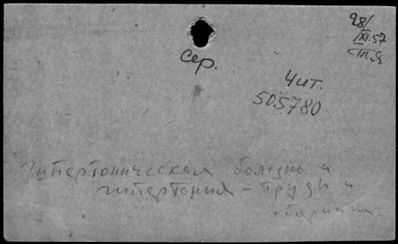 28/
XI.57
сер.
Чит.
505780
Гипертоническая болезнь и
гипертония - труды и
сборник.